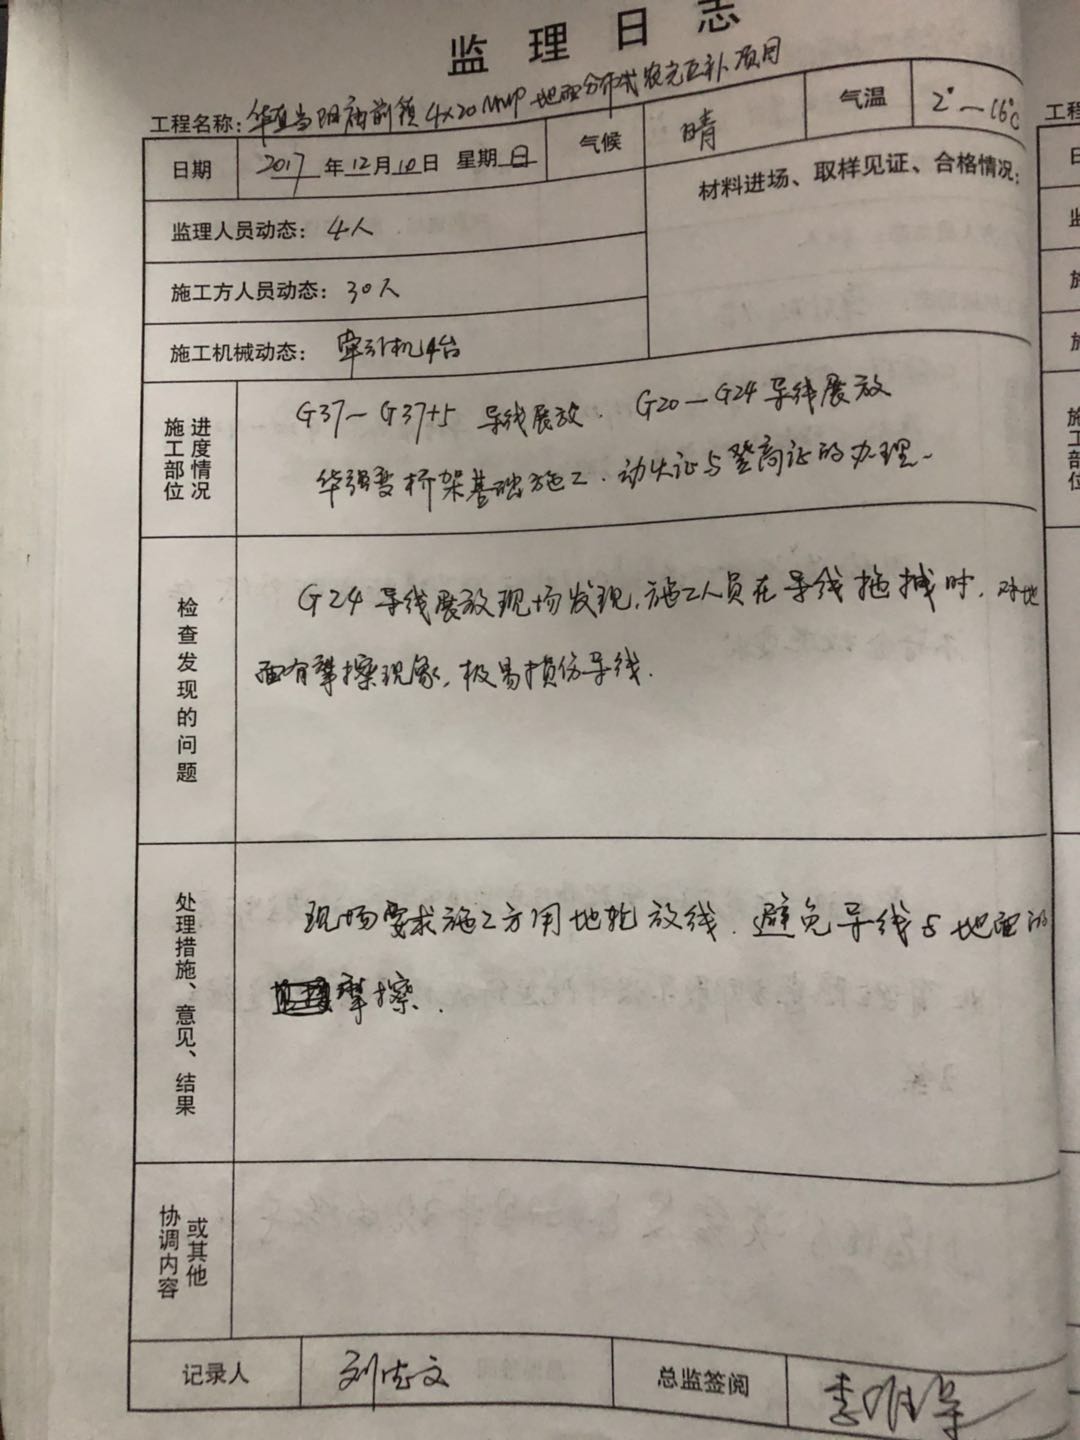 监理日志
工程名称: 当阳庙前镇4×20MWP地面分布式农光互补项目
日期 2017年12月10日 星期日 气候 晴 气温 2°—16℃
材料进场、取样见证、合格情况:
监理人员动态: 4人
施工方人员动态: 30人
施工机械动态: 牵引机4台
施工部位进度情况
G37—G37+5 导线展放. G20—G24导线展放
华强变桥架基础施工. 动火证与登高证的办理.
检查发现的问题
G24导线展放现场发现,施工人员在导线拖拽时,对地
面有摩擦现象,极易损伤导线.
处理措施、意见、结果
现场要求施工方用地轮放线.避免导线与地面的
摩擦.
协调内容或其他
记录人 刘志文 总监签阅